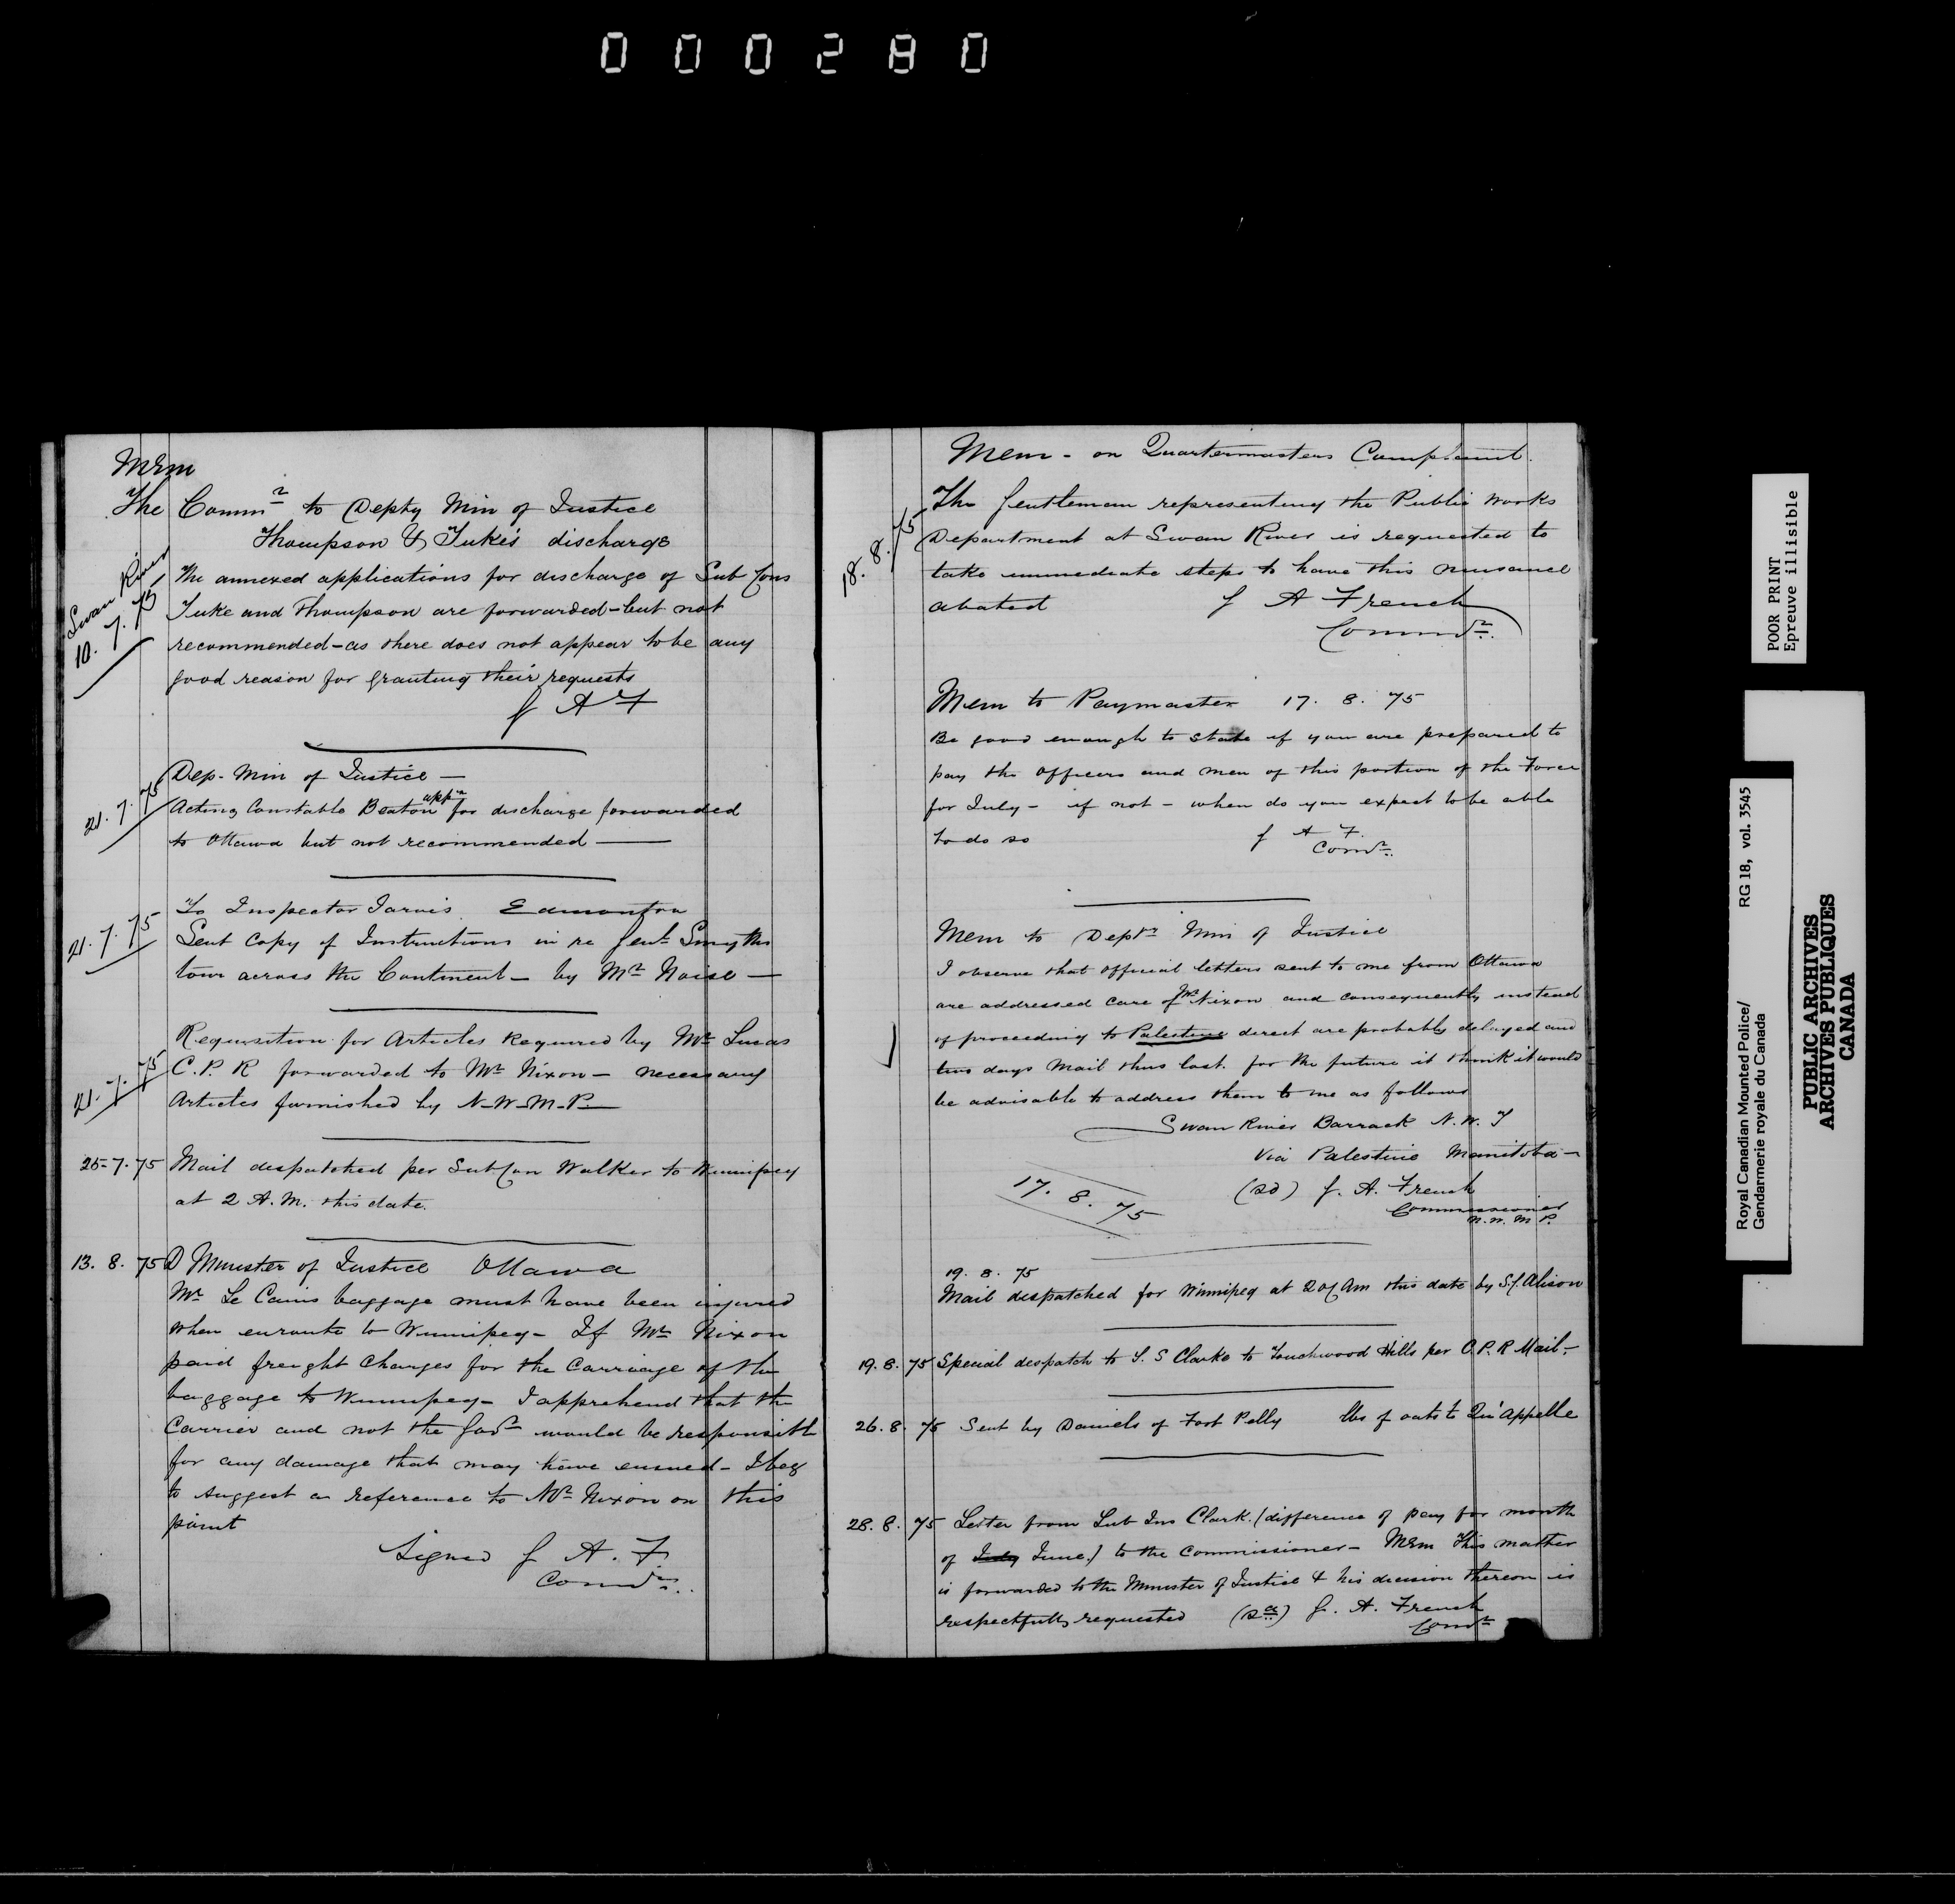 000280
Mem
The Commr to Depty Min of Justice
Thompson & Tuke's discharge
Swan River
10. 7. 75
The annexed applications for discharge of Sub Cons
Tuke and Thompson are forwarded - but not
recommended - as there does not appear to be any
good reason for granting their requests
G A F
21. 7. 75
Dep. Min of Justice —
Acting Constable Beaton appn for discharge forwarded
to Ottawa but not recommended —
21. 7. 75
To Inspector Jarvis Edmonton
Sent copy of Instructions in re Genl. Smyths
tour across the Continent - by Mr
21. 7. 75
Requisition for Articles Required by Mr Lucas
C. P. R forwarded to Mr Nixon - necessary
Articles furnished by N-W-M-P.
25-7.75 Mail despatched per Sub Con Walker to Winnipeg
at 2 A.M. this date.
13. 8. 75 D Minister of Justice Ottawa
Mr Le Cains baggage must have been injured
when enroute to Winnipeg - If Mr Nixon
paid freight charges for the carriage of the
baggage to Winnipeg - I apprehend that the
Carrier and not the Govt would be responsible
for any damage that may have ensued - I beg
to suggest a reference to Mr Nixon on this
point
Signed G A. F.
Commr.
Mem - on Quartermasters Complaint.
18. 8. 75
The Gentleman representing the Public Works
Department at Swan River is requested to
take immediate steps to have this nuisance
abated G A French
Commr.
Mem to Paymaster 17. 8. 75
Be good enough to state if you are prepared to
pay the Officers and men of this portion of the Force
for July - if not - when do you expect to be able
to do so G A F.
Comr.
Mem to Depty Min of Justice
I observe that official letters sent to me from Ottawa
are addressed care of Mr Nixon and consequently instead
of proceeding to Palestine direct are probably delayed and
two days Mail thus lost. for the future it think it would
be advisable to address them to me as follows
Swan River Barrack N. W. T
Via Palestine Manitoba -
17. 8. 75
(sd) G. A. French
Commissioner
N. W. M P.
19. 8. 75
Mail despatched for Winnipeg at 2 of Am this date by S.C. Alison
19. 8. 75 Special despatch to S. S Clarke to Touchwood Hills per C.P.R Mail.-
26. 8. 75 Sent by Daniels of Fort Pelly lbs of oats to Qu'Appelle
28. 8. 75 Letter from Sub Ins Clark. (difference of pay for month
of July June.) to the Commissioner - Mem This matter
is forwarded to the Minister of Justice & his decision thereon is
respectfully requested (sd) G. A. French
Comr
POOR PRINT
Epreuve illisible
Royal Canadian Mounted Police/ RG 18, vol. 3545
Gendarmerie royale du Canada
PUBLIC ARCHIVES
ARCHIVES PUBLIQUES
CANADA